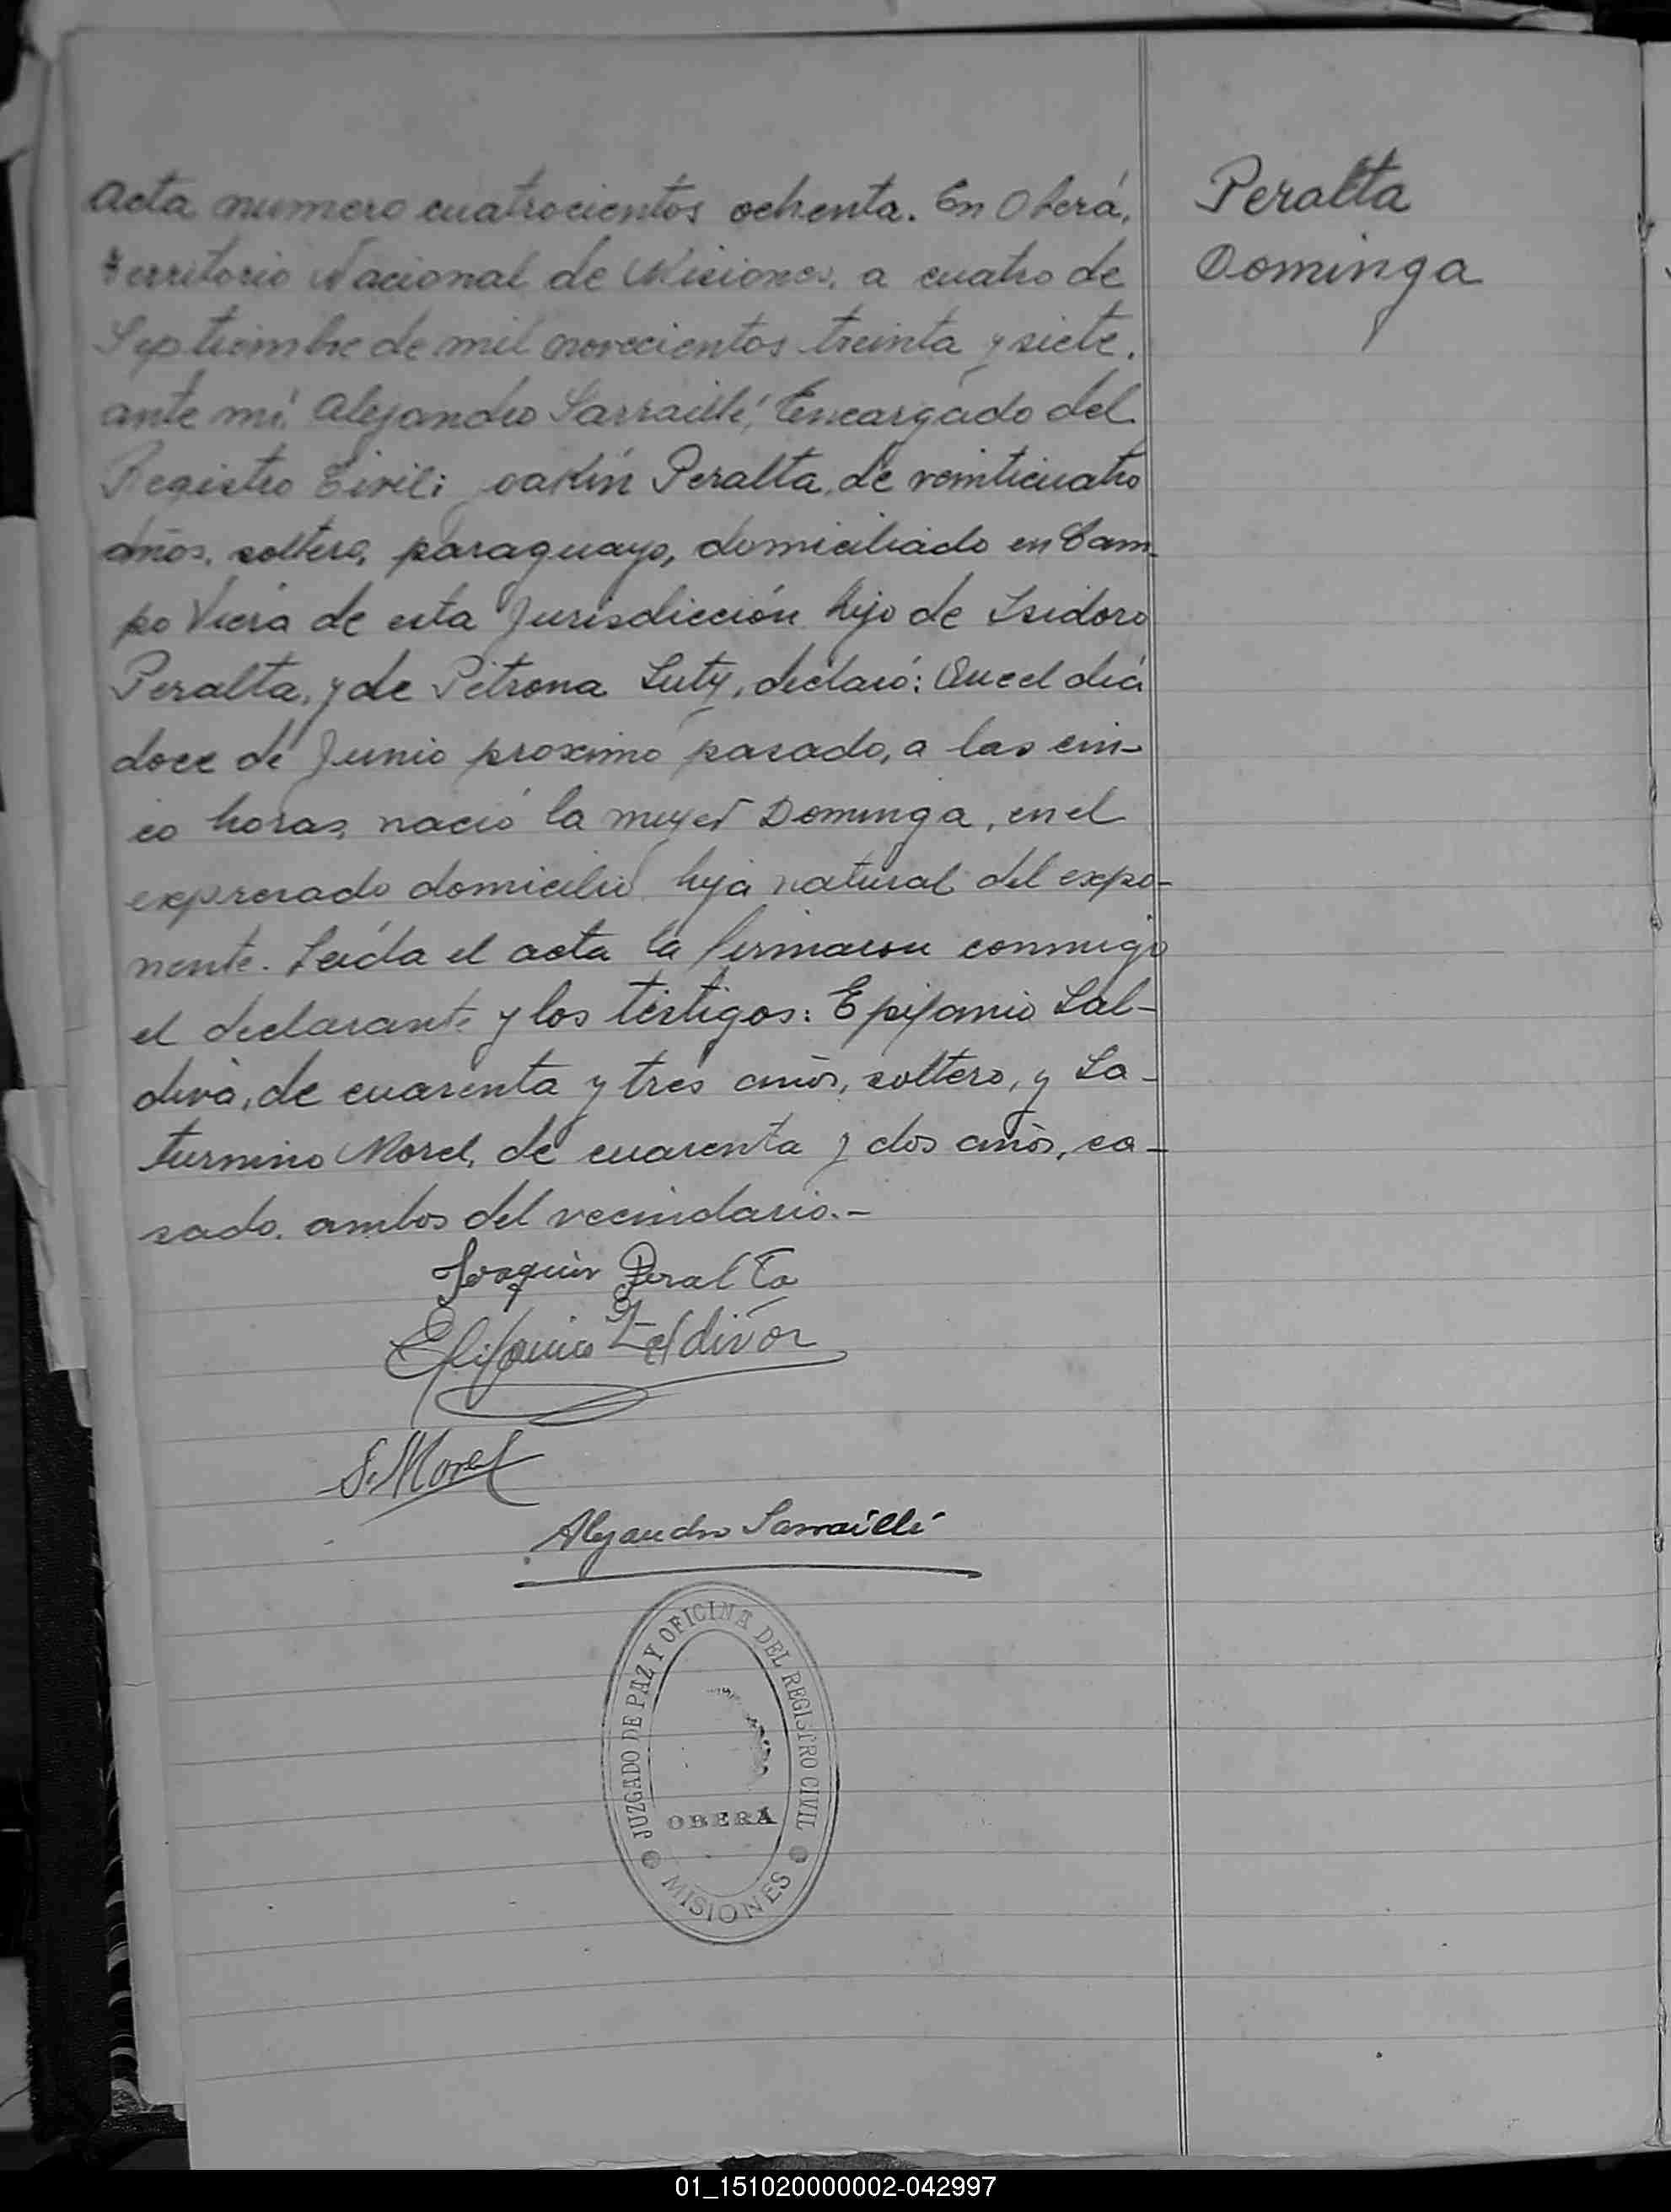 Acta numero cuatrocientos ochenta. En Oberá,
Territorio Nacional de Misiones, a cuatro de
Septiembre de mil novecientos treinta y siete,
ante mí, Alejandro Sarraillé, Encargado del
Registro Civil: Joakín Peralta, de veinticuatro
años, soltero, paraguayo, domiciliado en Cam-
po Viera de esta Jurisdicción hijo de Isidoro
Peralta, y de Petrona Luty, declaró: Que el día
doce de Junio proximo pasado, a las cin-
co horas, nació la mujer Dominga, en el
expresado domicilio hija natural del expo-
nente. Leída el acta la firmaron conmigo
el declarante y los testigos: Epifanio Sal-
diva, de cuarenta y tres años, soltero, y Sa-
turnino Morel, de cuarenta y dos años, ca-
sado, ambos del vecindario.-
Joaquin Peralta
Epifanio Zaldivar
S. Morel
Alejandro Sarraillé
JUZGADO DE PAZ Y OFICINA DEL REGISTRO CIVIL
OBERÁ
MISIONES
Peralta
Dominga
01_151020000002-042997